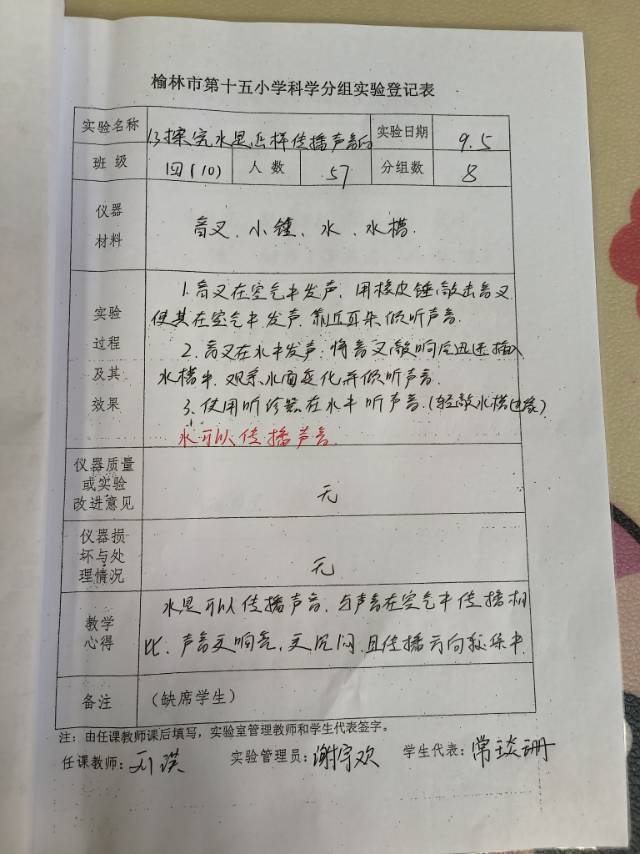 榆林市第十五小学科学分组实验登记表
实验名称 13探究水是怎样传播声音的 实验日期 9.5
班级 四(10) 人数 57 分组数 8
仪器
材料
音叉、小锤、水、水槽.
实验
过程
及其
效果
1.音叉在空气中发声.用橡皮锤敲击音叉
使其在空气中发声.靠近耳朵倾听声音.
2.音叉在水中发声.将音叉敲响后迅速插入
水槽中.观察水面变化并倾听声音.
3.使用听诊器在水中听声音.(轻敲水槽边缘)
水可以传播声音.
仪器质量
或实验
改进意见
无
仪器损
坏与处
理情况
无
教学
心得
水是可以传播声音.与声音在空气中传播相
比.声音更响亮,更沉闷.且传播方向较集中.
备注 (缺席学生)
注：由任课教师课后填写，实验室管理教师和学生代表签字。
任课教师: 实验管理员:谢宇欢 学生代表:常琰珊